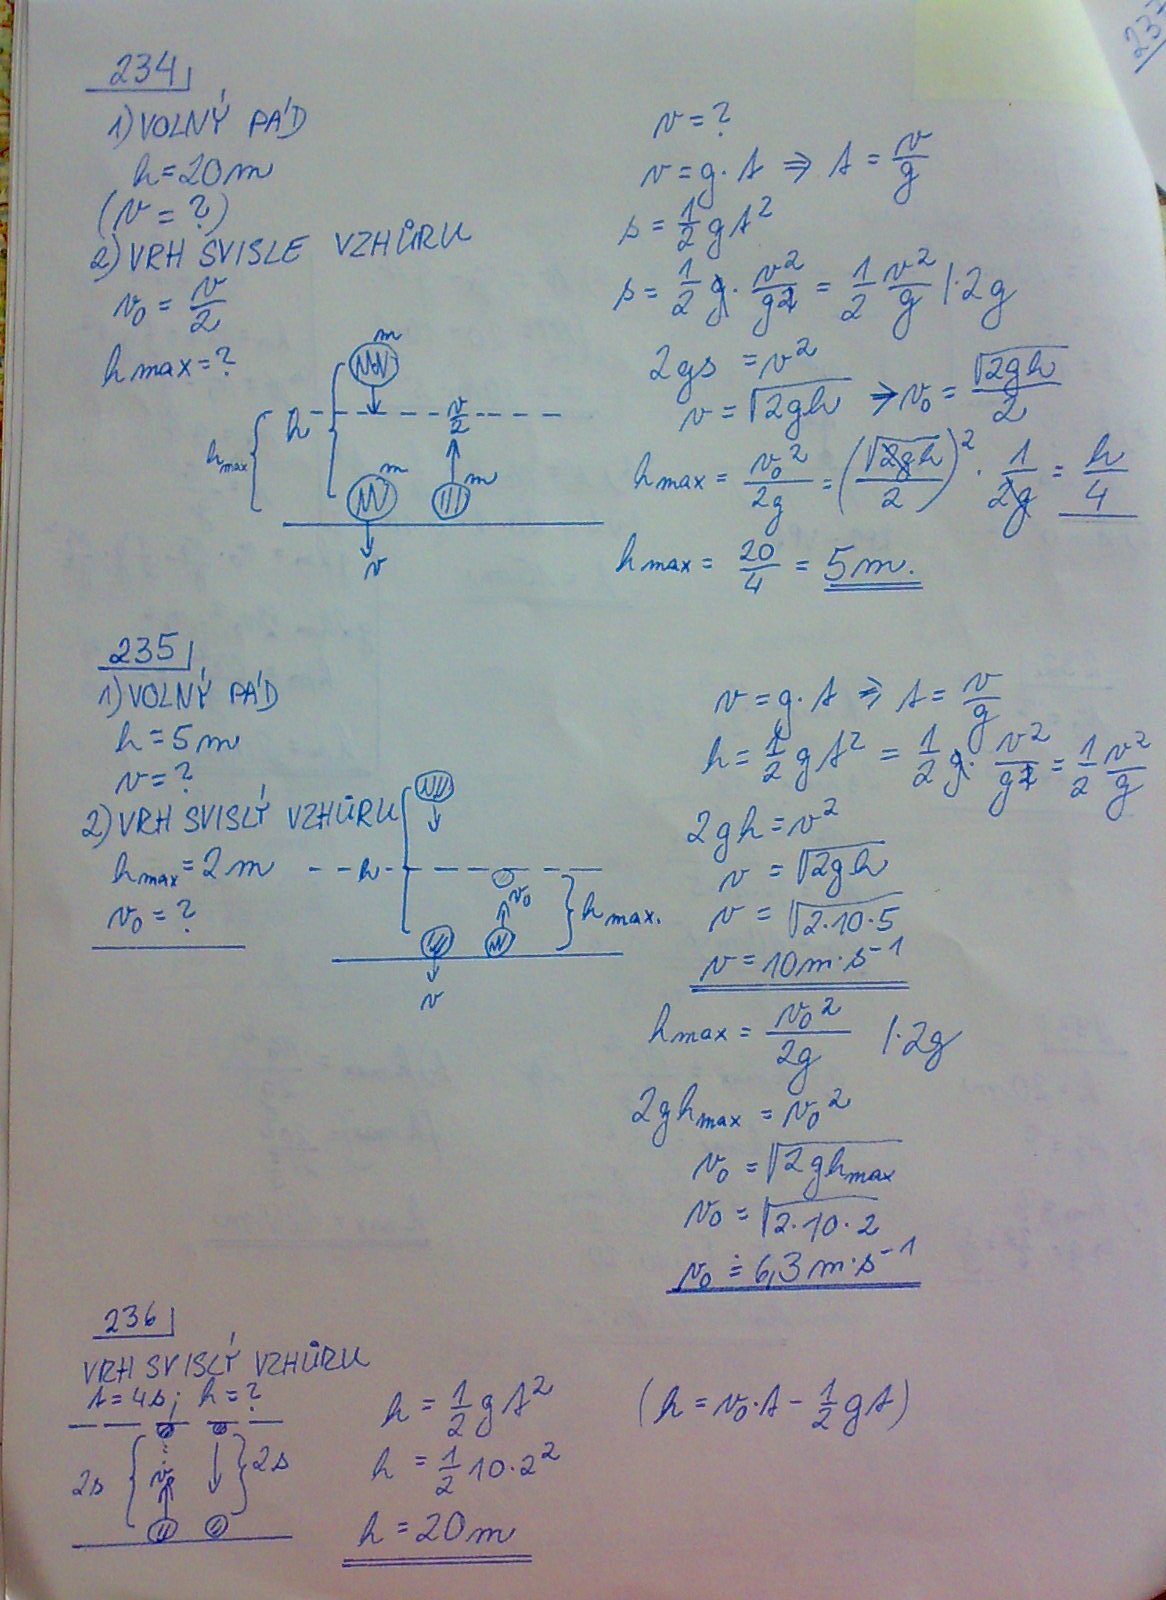 237
234
1) VOLNÝ PÁD
h = 20 m
(v = ?)
2) VRH SVISLE VZHŮRU
v₀ = v/2
h max = ?
m
h
v/2
h max
m
m
v
v = ?
v = g · t ⇒ t = v/g
s = 1/2 g t²
s = 1/2 g · v²/g² = 1/2 v²/g | · 2g
2gs = v²
v = √2gh ⇒ v₀ = √2gh/2
h max = v₀²/2g = (√2gh/2)² · 1/2g = h/4
h max = 20/4 = 5 m.
235
1) VOLNÝ PÁD
h = 5 m
v = ?
2) VRH SVISLÝ VZHŮRU
h max = 2 m
v₀ = ?
h
v₀
h max.
v
v = g · t ⇒ t = v/g
h = 1/2 g t² = 1/2 g · v²/g² = 1/2 v²/g
2gh = v²
v = √2gh
v = √2·10·5
v = 10 m · s⁻¹
h max = v₀²/2g | · 2g
2gh max = v₀²
v₀ = √2gh max
v₀ = √2·10·2
v₀ ≐ 6,3 m · s⁻¹
236
VRH SVISLÝ VZHŮRU
t = 4s; h = ?
2s
v
2s
h = 1/2 g t²
h = 1/2 10 · 2²
h = 20 m
(h = v₀ · t - 1/2 g t)